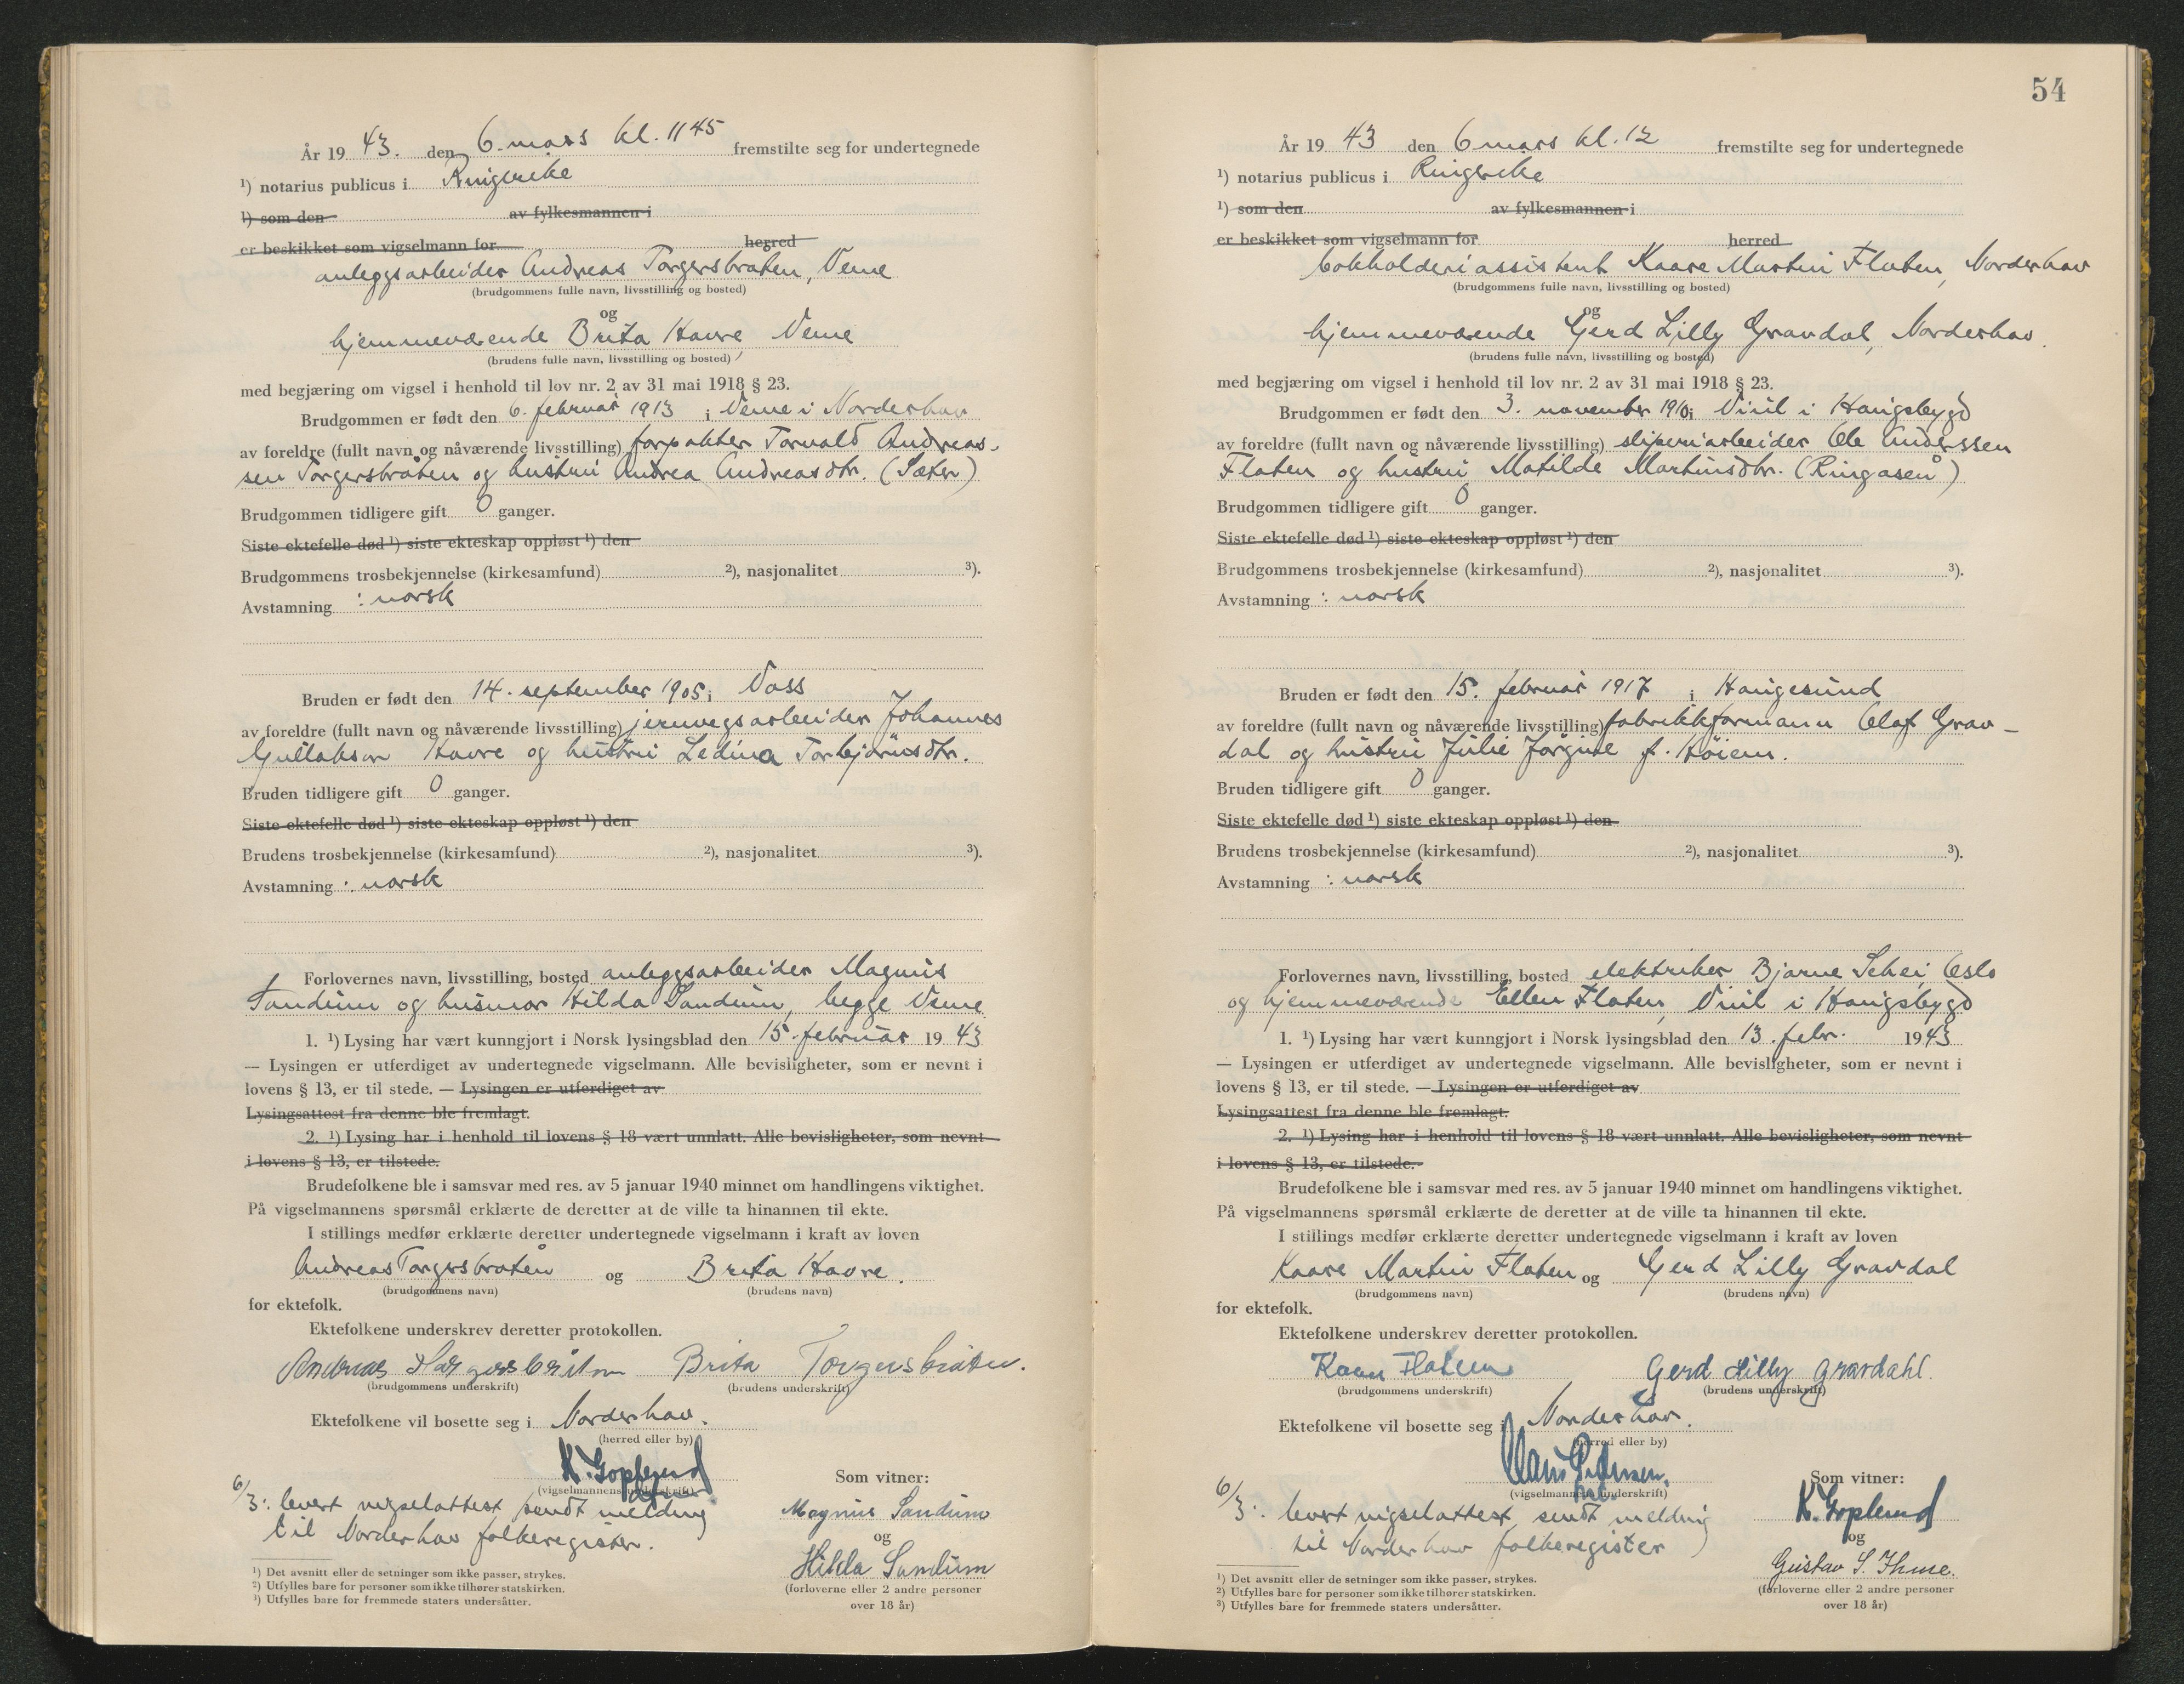 År 19 43. den 6. mars kl. 11 45 fremstilte seg for undertegnede
¹) notarius publicus i Ringerike
¹) som den av fylkesmannen i
er beskikket som vigselmann for herred
anleggsarbeider Andreas Torgersbråten, Veme
(brudgommens fulle navn, livsstilling og bosted)
og
hjemmeværende Brita Havre, Veme
(brudens fulle navn, livsstilling og bosted)
med begjæring om vigsel i henhold til lov nr. 2 av 31 mai 1918 § 23.
Brudgommen er født den 6. februar 1913 i Veme i Norderhov
av foreldre (fullt navn og nåværende livsstilling) forpakter Torvald Andreas-
sen Torgersbråten og hustru Andrea Andreasdtr. (Sæter)
Brudgommen tidligere gift 0 ganger.
Siste ektefelle død ¹) siste ekteskap oppløst ¹) den
Brudgommens trosbekjennelse (kirkesamfund) ²), nasjonalitet ³).
Avstamning : norsk
Bruden er født den 14. september 1905 i Voss
av foreldre (fullt navn og nåværende livsstilling) jernvegsarbeider Johannes
Gullakson Havre og hustru Ledina Torbjørnsdtr.
Bruden tidligere gift 0 ganger.
Siste ektefelle død ¹) siste ekteskap oppløst ¹) den
Brudens trosbekjennelse (kirkesamfund) ²), nasjonalitet ³).
Avstamning : norsk
Forlovernes navn, livsstilling, bosted anleggsarbeider Magnus
Sandum og husmor Hilda Sandum, begge Veme
1. ¹) Lysing har vært kunngjort i Norsk lysingsblad den 15. februar 19 43
— Lysingen er utferdiget av undertegnede vigselmann. Alle bevisligheter, som er nevnt i
lovens § 13, er til stede. — Lysingen er utferdiget av
Lysingsattest fra denne ble fremlagt.
2. ¹) Lysing har i henhold til lovens § 18 vært unnlatt. Alle bevisligheter, som nevnt
i lovens § 13, er tilstede.
Brudefolkene ble i samsvar med res. av 5 januar 1940 minnet om handlingens viktighet.
På vigselmannens spørsmål erklærte de deretter at de ville ta hinannen til ekte.
I stillings medfør erklærte deretter undertegnede vigselmann i kraft av loven
Andreas Torgersbråten og Brita Havre.
(brudgommens navn) (brudens navn)
for ektefolk.
Ektefolkene underskrev deretter protokollen.
Andreas Torgersbråten Brita Torgersbråten.
(brudgommens underskrift) (brudens underskrift)
Ektefolkene vil bosette seg i Norderhov.
(herred eller by)
K. Goplerud
(vigselmannens underskrift)
Som vitner:
6/3: levert vigselattest, sendt melding
til Norderhov folkeregister.
Magnus Sandum
og
Hilda Sandum
(forloverne eller 2 andre personer
over 18 år)
¹) Det avsnitt eller de setninger som ikke passer, strykes.
²) Utfylles bare for personer som ikke tilhører statskirken.
³) Utfylles bare for fremmede staters undersåtter.
54
År 19 43 den 6 mars kl. 12 fremstilte seg for undertegnede
¹) notarius publicus i Ringerike
¹) som den av fylkesmannen i
er beskikket som vigselmann for herred
bokholderiassistent Kaare Martin Flaten, Norderhov
(brudgommens fulle navn, livsstilling og bosted)
og
hjemmeværende Gerd Lilly Gravdal, Norderhov.
(brudens fulle navn, livsstilling og bosted)
med begjæring om vigsel i henhold til lov nr. 2 av 31 mai 1918 § 23.
Brudgommen er født den 3. november 1910 i Viul i Haugsbygd
av foreldre (fullt navn og nåværende livsstilling) sliperiarbeider Ole Anderssen
Flaten og hustru Matilde Martinsdtr. (Ringåsen)
Brudgommen tidligere gift 0 ganger.
Siste ektefelle død ¹) siste ekteskap oppløst ¹) den
Brudgommens trosbekjennelse (kirkesamfund) ²), nasjonalitet ³).
Avstamning : norsk
Bruden er født den 15. februar 1917 i Haugesund
av foreldre (fullt navn og nåværende livsstilling) fabrikkformann Olaf Grav-
dal og hustru Julie Jørgine f. Høiem.
Bruden tidligere gift 0 ganger.
Siste ektefelle død ¹) siste ekteskap oppløst ¹) den
Brudens trosbekjennelse (kirkesamfund) ²), nasjonalitet ³).
Avstamning : norsk
Forlovernes navn, livsstilling, bosted elektriker Bjarne Schei, Oslo
og hjemmeværende Ellen Flaten, Viul i Haugsbygd
1. ¹) Lysing har vært kunngjort i Norsk lysingsblad den 13. febr. 19 43
— Lysingen er utferdiget av undertegnede vigselmann. Alle bevisligheter, som er nevnt i
lovens § 13, er til stede. — Lysingen er utferdiget av
Lysingsattest fra denne ble fremlagt.
2. ¹) Lysing har i henhold til lovens § 18 vært unnlatt. Alle bevisligheter, som nevnt
i lovens § 13, er tilstede.
Brudefolkene ble i samsvar med res. av 5 januar 1940 minnet om handlingens viktighet.
På vigselmannens spørsmål erklærte de deretter at de ville ta hinannen til ekte.
I stillings medfør erklærte deretter undertegnede vigselmann i kraft av loven
Kaare Martin Flaten og Gerd Lilly Gravdal
(brudgommens navn) (brudens navn)
for ektefolk.
Ektefolkene underskrev deretter protokollen.
Kaare Flaten Gerd Lilly Gravdahl.
(brudgommens underskrift) (brudens underskrift)
Ektefolkene vil bosette seg i Norderhov.
(herred eller by)
(vigselmannens underskrift)
Som vitner:
6/3: levert vigselattest, sendt melding
til Norderhov folkeregister
K. Goplerud
og
Gustav S. Ihme.
(forloverne eller 2 andre personer
over 18 år)
¹) Det avsnitt eller de setninger som ikke passer, strykes.
²) Utfylles bare for personer som ikke tilhører statskirken.
³) Utfylles bare for fremmede staters undersåtter.